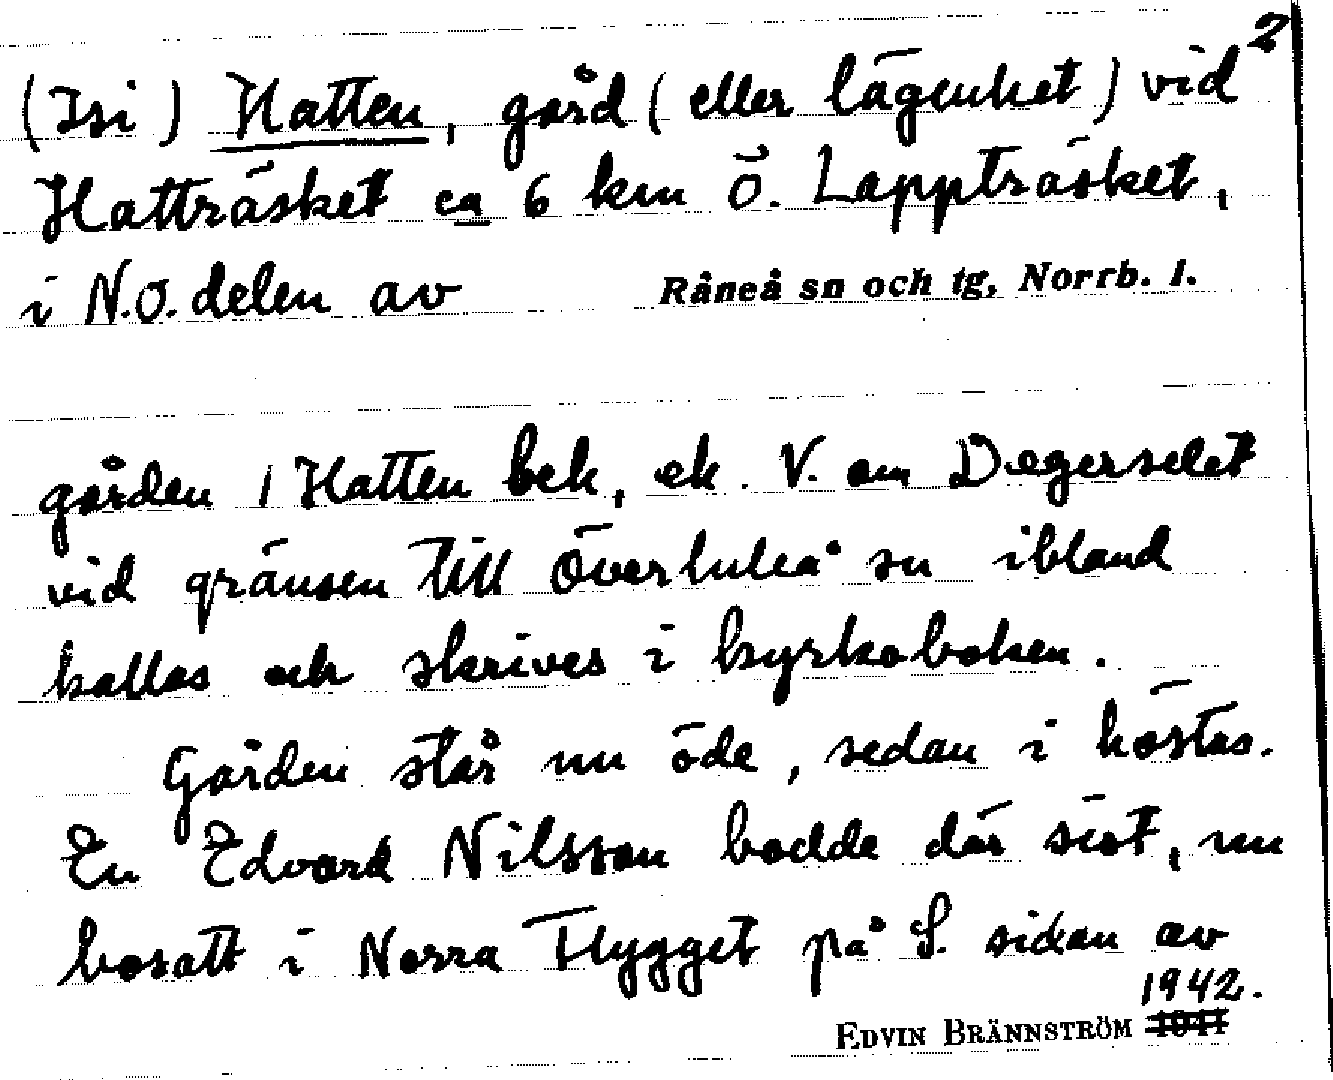 2
(Isi) Hatten, gård (eller lägenhet) vid
Hatträsket ca 6 km Ö. Lappträsket,
i N.O. delen av Råneå sn och tg, Norrb. l.
gården i Hatten bek, ek. V. om Degerselet
vid gränsen till Överluleå sn ibland
kallas och skrives i kyrkoboken.
Gården står nu öde, sedan i höstas.
En Edvard Nilsson bodde där sist, nu
bosatt i Norra Flygget på S. sidan av
1942.
EDVIN BRÄNNSTRÖM 1941